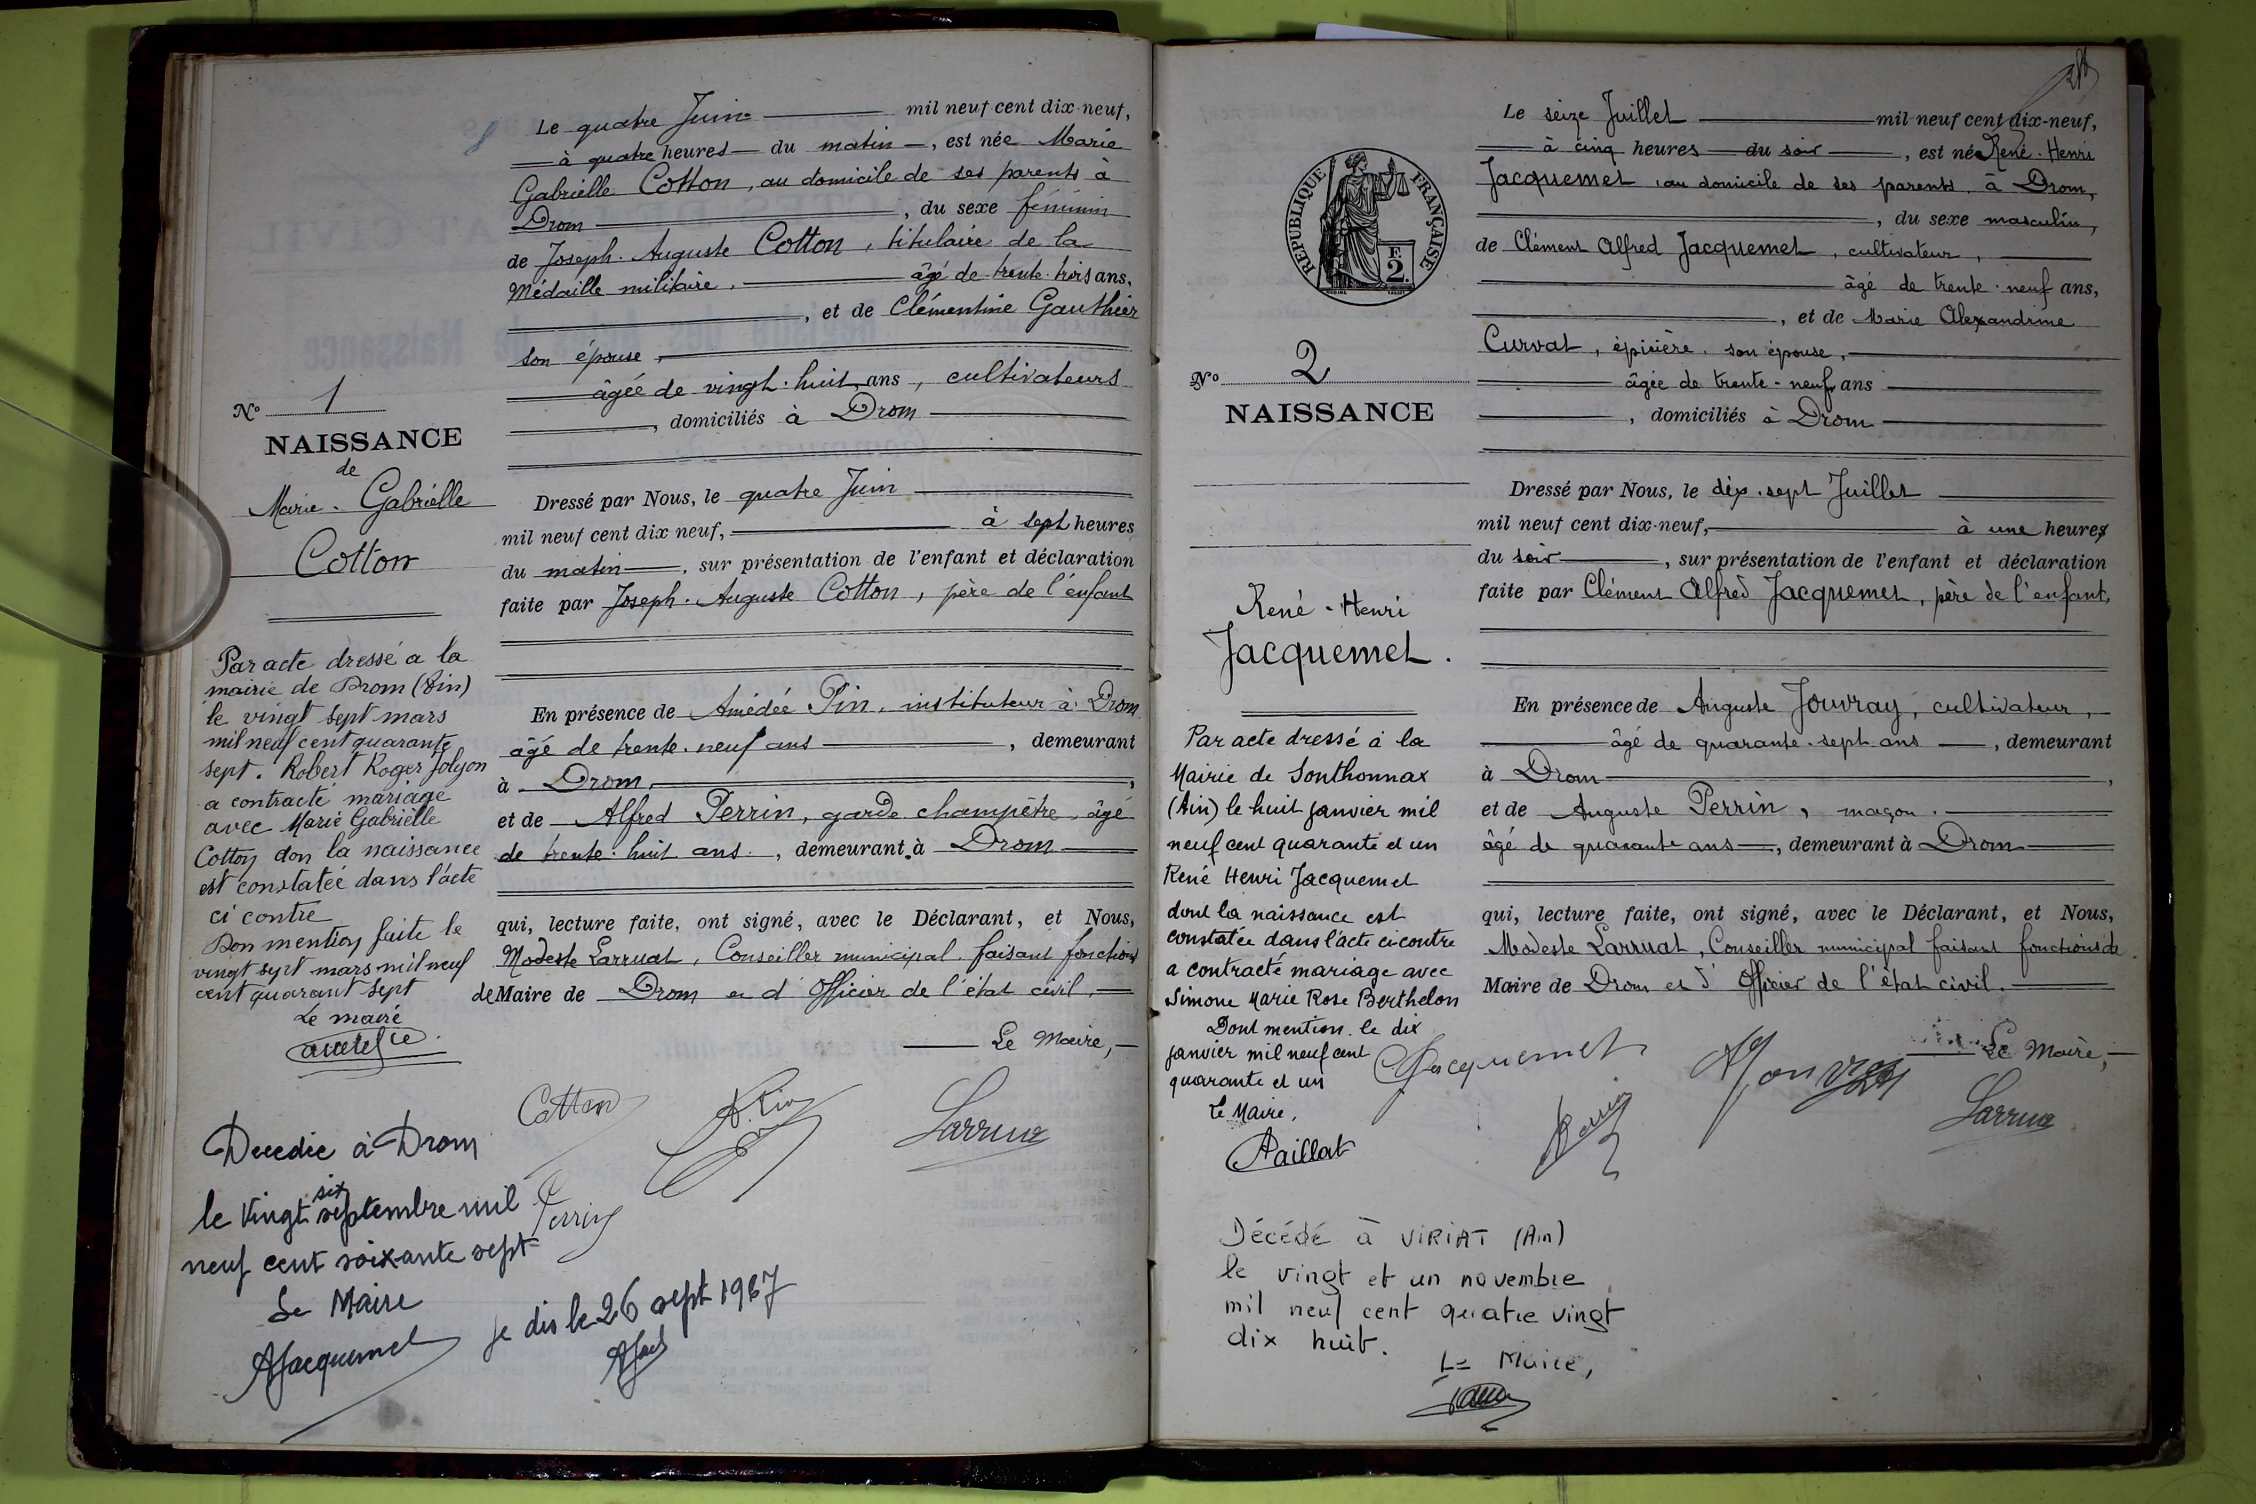 Le quatre Juin mil neuf cent dix-neuf,
à quatre heures du matin, est née Marie
Gabriélle Cotton, au domicile de ses parents à
Drom, du sexe féminin
de Joseph-Auguste Cotton, titulaire de la
Médaille militaire, âgé de trente-trois ans,
, et de Clémentine Gauthier
son épouse,
âgée de vingt-huit ans, cultivateurs
, domiciliés à Drom
Nº 1
NAISSANCE
de
Marie-Gabriélle
Cotton
Dressé par Nous, le quatre Juin
mil neuf cent dix neuf, à sept heures
du matin, sur présentation de l'enfant et déclaration
faite par Joseph-Auguste Cotton, père de l'enfant
En présence de Amédée Pin, instituteur à Drom
âgé de trente-neuf ans, demeurant
à Drom,
et de Alfred Perrin, garde champêtre, âgé
de trente-huit ans, demeurant à Drom
qui, lecture faite, ont signé, avec le Déclarant, et Nous,
Modeste Larruat, Conseiller municipal faisant fonctions
de Maire de Drom et d'Officier de l'état civil.
Le Maire,
Par acte dressé a la
mairie de Drom (Ain)
le vingt sept mars
mil neuf cent quarante
sept. Robert Roger Jolyon
a contracté mariage
avec Marie Gabriélle
Cotton don la naissance
est constatée dans l'acte
ci contre
Don mention faite le
vingt sept mars mil neuf
cent quarant sept
Le maire
Cotton
Larrua
Perrin
Decedée à Drom
six
le vingt septembre mil
neuf cent soixante sept
Le Maire
AJacquemet
je dis le 26 sept 1967
AJac
Le seize Juillet mil neuf cent dix-neuf,
à cinq heures du soir, est né René-Henri
Jacquemet, au domicile de ses parents, à Drom,
, du sexe masculin,
de Clément Alfred Jacquemet, cultivateur,
âgé de trente-neuf ans,
, et de Marie Alexandrine
Curvat, épicière, son épouse,
âgée de trente-neuf ans
, domiciliés à Drom
RÉPUBLIQUE FRANÇAISE
E
2.
Nº 2
NAISSANCE
René-Henri
Jacquemet.
Dressé par Nous, le dix-sept Juillet
mil neuf cent dix-neuf, à une heures
du soir, sur présentation de l'enfant et déclaration
faite par Clément Alfred Jacquemet, père de l'enfant,
En présence de Auguste Jouvray, cultivateur,
âgé de quarante-sept ans, demeurant
à Drom,
et de Auguste Perrin, maçon.
âgé de quarante ans, demeurant à Drom
qui, lecture faite, ont signé, avec le Déclarant, et Nous,
Modeste Larruat, Conseiller municipal faisant fonctions de
Maire de Drom et d'Officier de l'état civil.
Le Maire,
Par acte dressé à la
Mairie de Sonthonnax
(Ain) le huit janvier mil
neuf cent quarante et un
René Henri Jacquemet
dont la naissance est
constatée dans l'acte ci contre
a contracté mariage avec
Simone Marie Rose Berthelon
Dont mention. le dix
janvier mil neuf cent
quarante et un
Le Maire,
Paillat
Jacquemet
Jouvray
Perrin
Larrua
Décédé à VIRIAT (Ain)
le vingt et un novembre
mil neuf cent quatre vingt
dix huit.
Le Maire,